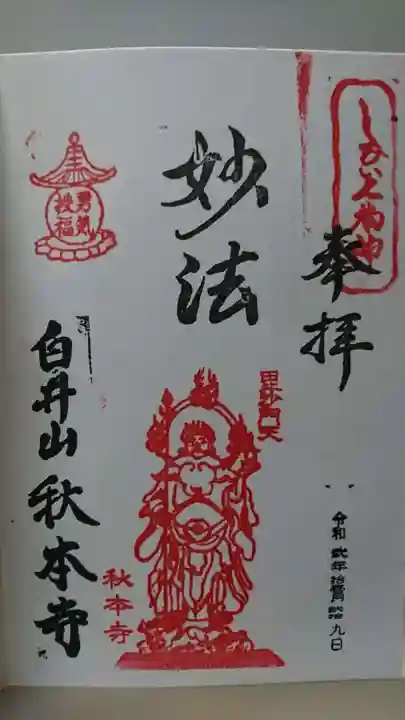 しろい七福神
奉拝
令和 弐年 九日
妙法
毘沙門天
勇気
授福
白井山 秋本寺
秋本寺